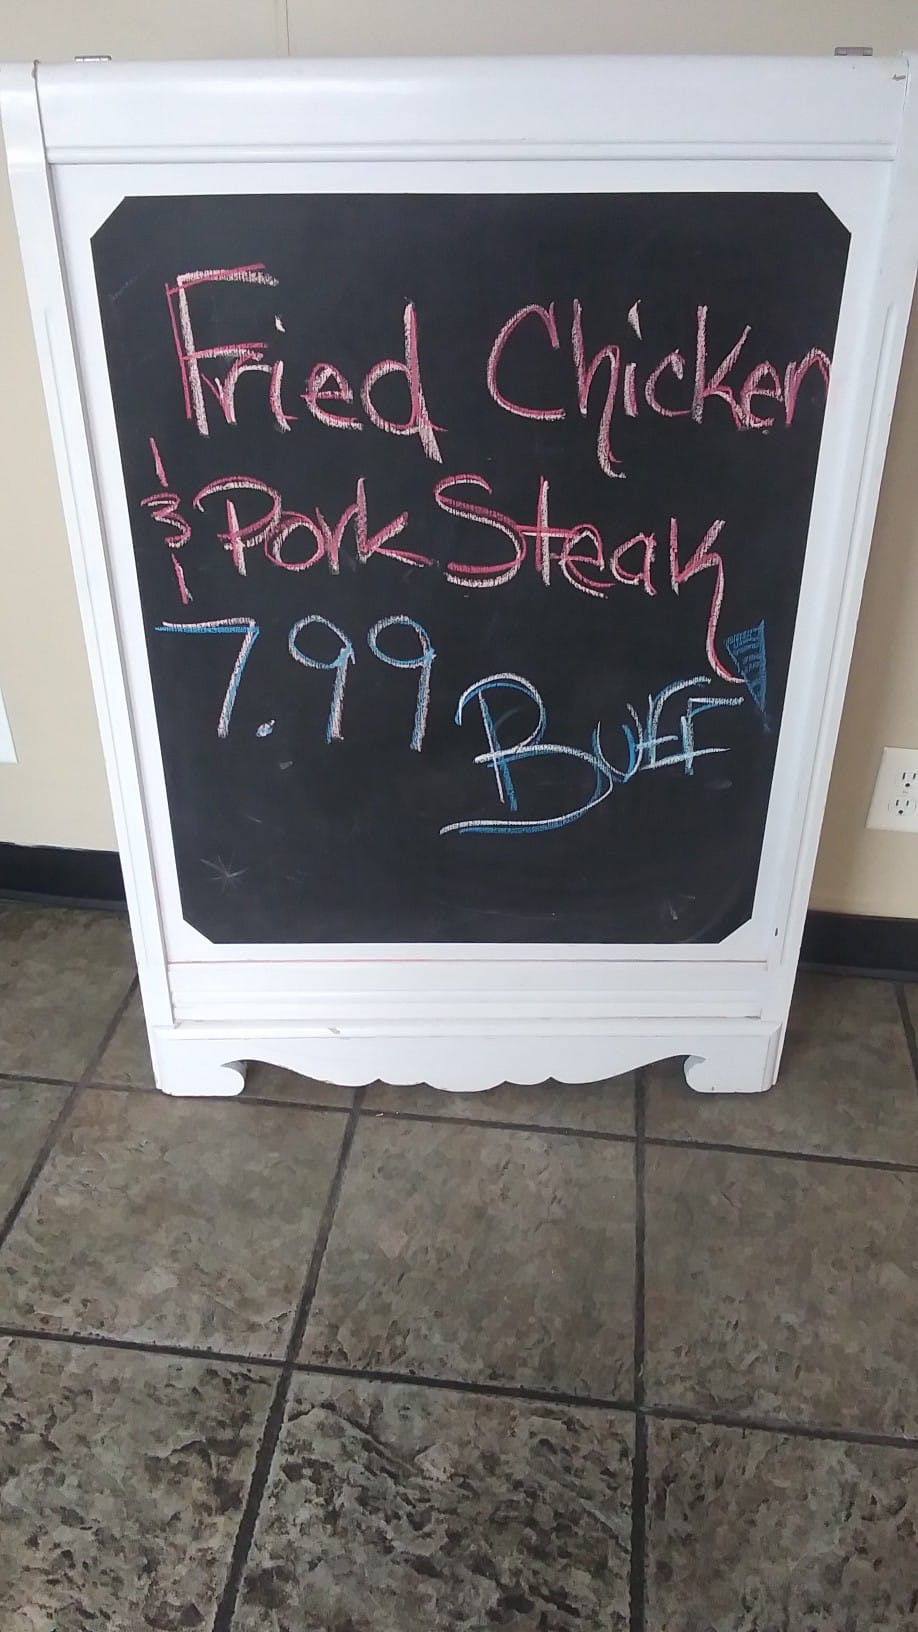 Fried Chicken
& Pork Steak
7.99 Buff